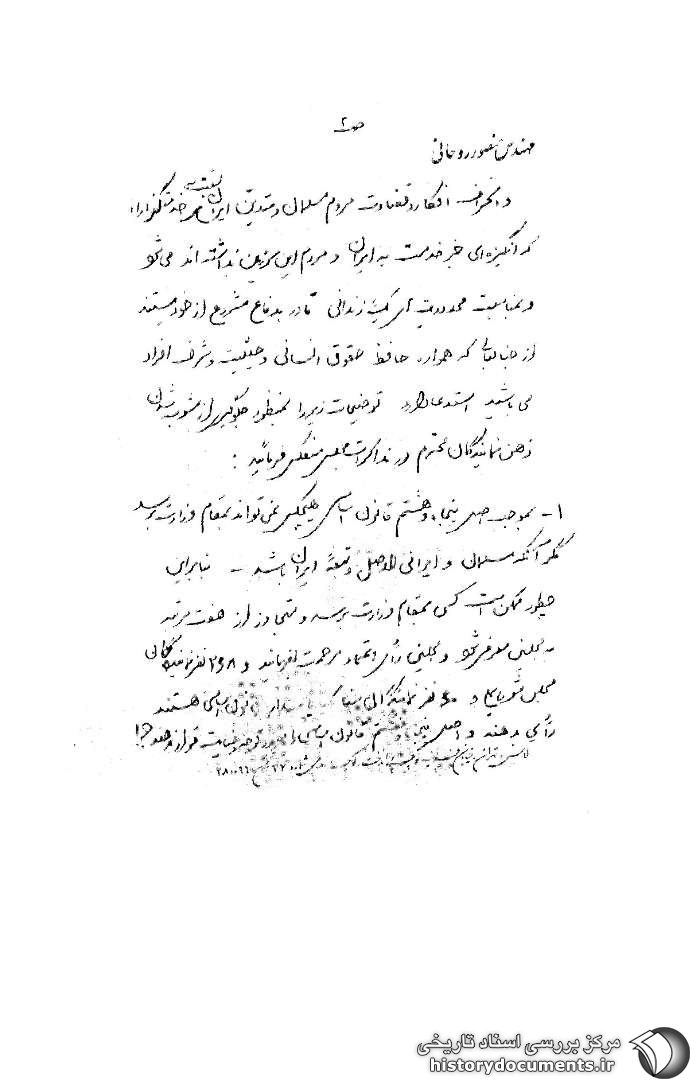 ص ۲
مهندس منصور روحانی
و انحراف افکار و قضاوت مردم مسلمان و متدین ایران نسبت به هر خدمتگزاران
که انگیزه‌ای جز خدمت به ایران و مردم این سرزمین نداشته‌اند می‌شود
و بمناسبت محدودیت های یک زندانی قادر بدفاع مشروع از خود نیستند
از جنابعالی که همواره حافظ حقوق انسانی و حیثیت و شرف افراد
می باشید استدعا دارد توضیحات زیر را بمنظور جلوگیری از مشوب شدن
ذهن نمایندگان محترم در مذاکرات مجلس منعکس فرمائید :
۱- بموجب اصل پنجاه و هشتم قانون اساسی هیچکس نمی تواند بمقام وزارت برسد
مگر آنکه مسلمان و ایرانی الاصل و تبعهٔ ایران باشد - بنابراین
چطور ممکن است کسی بمقام وزارت برسد و متجاوز از هفت مرتبه
به مجلسین معرفی شود و مجلسین رأی اعتماد مرحمت بفرمایند و ۲۶۸ نفر نماینگان
مجلس شورایملی و ۶۰ نفر نمایندگان سنا که پاسدار قانون اساسی هستند
رأی بدهند و اصل پنجاه و هشتم قانون اساسی را مورد توجه و عنایت قرار ندهند ؟!